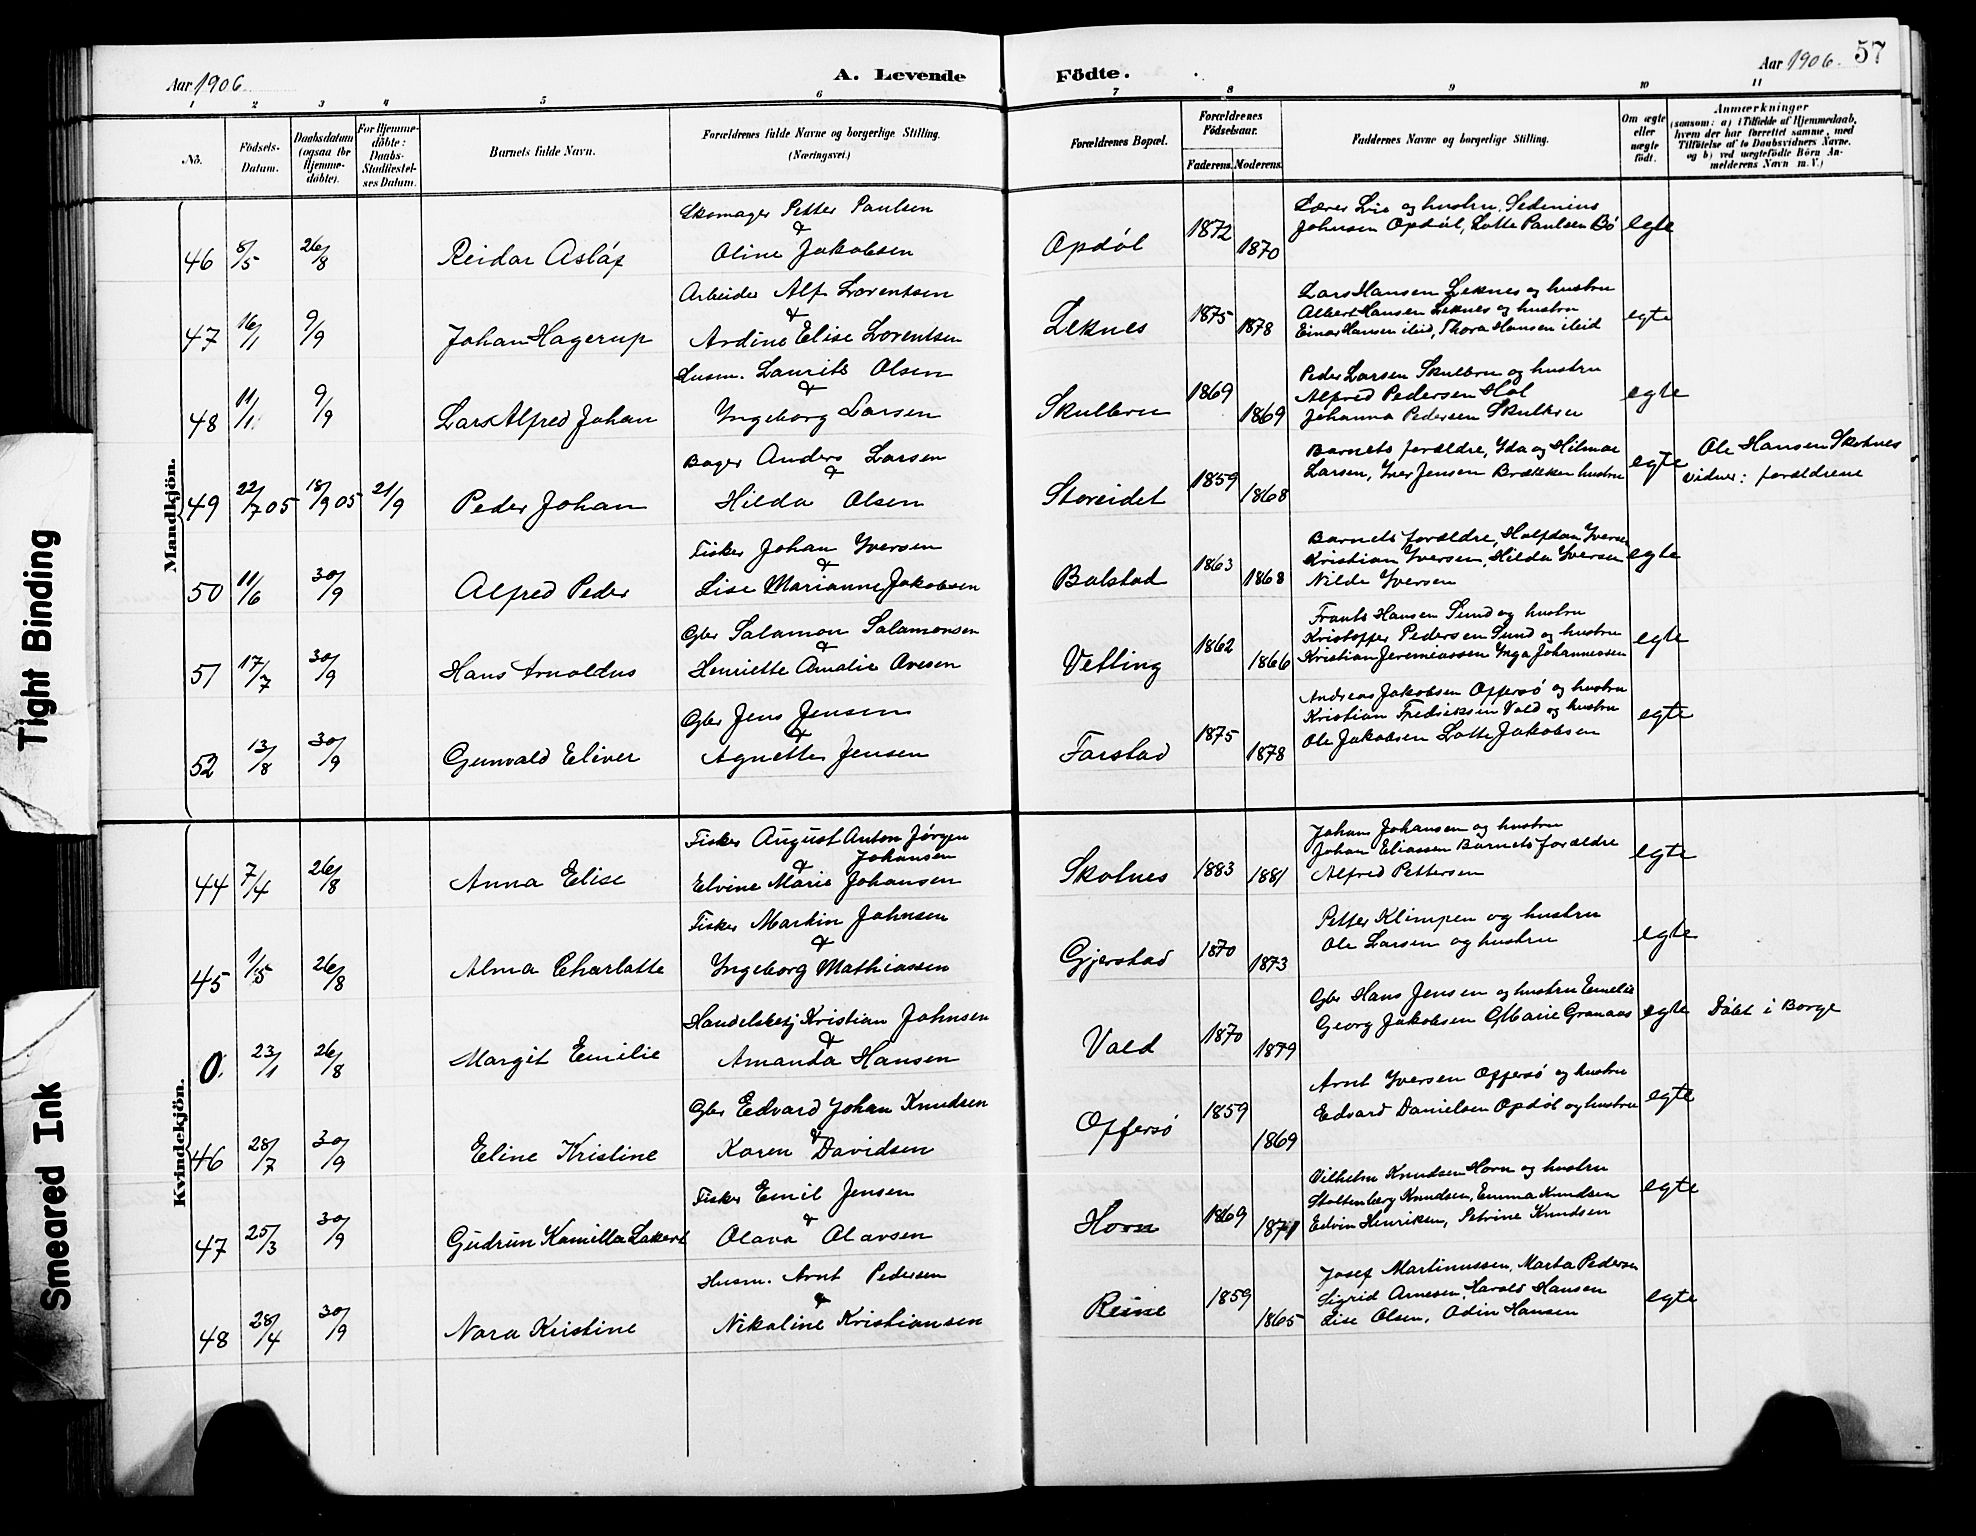 Aar 1906
A. Levende
Födte.
Aar 1906. 57
1 2 3 4 5 6 7 8 9 10 11
No.
Födsels-Datum.
Daabsdatum (ogsaa for Hjemme-döbte).
For Hjemme-döbte: Daabs-Stadfæstel-ses Datum.
Barnets fulde Navn.
Forældrenes fulde Navne og borgerlige Stilling. (Næringsvei.)
Forældrenes Bopæl.
Forældrenes Födselsaar.
Faderens. Moderens.
Faddernes Navne og borgerlige Stilling.
Om ægte eller uægte födt.
Anmærkninger
(saasom: a) i Tilfælde af Hjemmedaab, hvem der har forrettet samme, med Tilföielse af to Daabsvidners Navne, og b) ved uægtefödte Börn An-melderens Navn m. V.)
Mandkjön.
46 8/5 26/8 Reidar Asláf
Skomager Petter Paulsen
& Oline Jakobsen
Opdøl 1872 1870
Lærer Lie og hustru, Sedenius
Johnsen Opdøl, Lotte Paulsen Bø
egte
47 16/1 9/9 Johan Hagerup
Arbeider Alf Lorentsen
& Ardine Elise Lorentsen
Leknes 1875 1878
Lars Hansen Leknes og hustru
Albert Hansen Leknes og hustru
Einar Hansen ibid, Thora Hansen ibid
egte
48 11/1 9/9 Lars Alfred Johan
Husm. Laurits Olsen
& Ingeborg Larsen
Skulbru 1869 1869
Peder Larsen Skulbru og hustru
Alfred Pedersen Hol
Johanna Pedersen Skulbru
egte
49 22/7 05 18/9 05 21/9 Peder Johan
Bager Anders Larsen
& Hilda Olsen
Storeidet 1859 1868
Barnets forældre, Ida og Hilmar
Larsen, Iver Jensen Brækken hustru
egte
Ole Hansen Skotnes
vidner: forældrene
50 11/6 30/9 Alfred Peder
Fisker Johan Iversen
& Lise Marianne Jakobsen
Balstad 1863 1868
Barnets forældre, Halfdan Iversen
Kristian Iversen, Hilda Iversen
Nilda Iversen
egte
51 17/7 30/9 Hans Arnoldus
Gbr Salamon Salamonsen
& Henriette Amalie Avesen
Vetting 1862 1866
Frants Hansen Sund og hustru
Kristoffer Pedersen Sund og hustru
Kristian Jeremiassen Inga Johannessen
egte
52 13/8 30/9 Gunvald Eliver
Gbr Jens Jensen
& Agnette Jensen
Farstad 1875 1878
Andreas Jakobsen Offersø og hustru
Kristian Fredriksen Vold og hustru
Ole Jakobsen Lotte Jakobsen
egte
Kvindekjön.
44 7/4 26/8 Anna Elise
Fisker August Anton Jørgen Johansen
& Elvine Marie Johansen
Skotnes 1883 1881
Johan Johansen og hustru
Johan Eliassen Barnets forældre
Alfred Pettersen
egte
45 1/5 26/8 Alma Charlotte
Fisker Martin Johnsen
& Ingeborg Mathiassen
Gjerstad 1870 1873
Petter Klimpen og hustru
Ole Larsen og hustru
egte
0. 23/1 26/8 Margit Emilie
Handelsbetj Kristian Johnsen
& Amanda Hansen
Vold 1870 1879
Gbr Hans Jensen og hustru Emelie
Georg Jakobsen G Marie Granaas
egte
Døbt i Borge
46 28/7 30/9 Eline Kristine
Gbr Edvard Johan Knudsen
& Karen Davidsen
Offersø 1859 1869
Arnt Iversen Offersø og hustru
Edvard Danielsen Opdøl og hustru
egte
47 25/3 30/9 Gudrun Kamilla
Fisker Emil Jensen
& Olava Olavsen
Horn 1869 1871
Vilhelm Knudsen Horn og hustru
Stoltenberg Knudsen, Emma Knudsen
Edvin Henriksen, Petrine Knudsen
egte
48 28/4 30/9 Nora Kristine
Husm. Arnt Pedersen
& Nikoline Kristiansen
Reine 1859 1865
Josef Martinussen, Marta Pedersen
Sigrid Arnesen, Harald Hansen
Lise Olsen, Odin Hansen
egte
Tight Binding
Smeared Ink